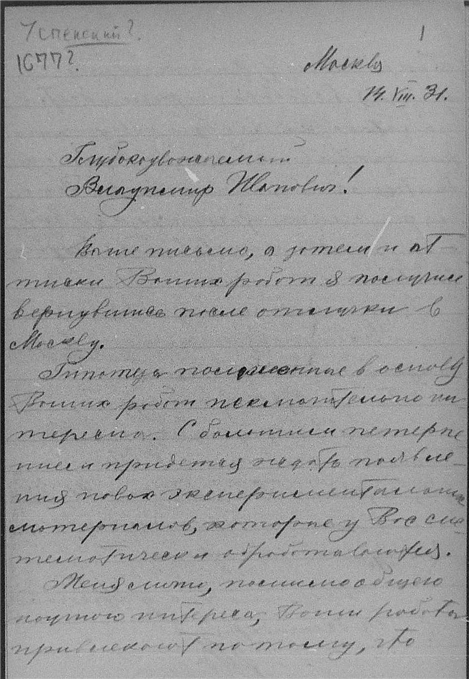 Успенский?
1
1677?
Москва
14. VIII. 31.
Глубокоуважаемый
Владимир Иванович!
Ваше письмо, а затем и от
тиски Ваших работ я получил
вернувшись после отлучки в
Москву.
Гипотеза положенная в основу
Ваших работ исключительно ин
тересна. С большим нетерпе
нием придется ждать появле
ния новых экспериментальных
материалов, которые у Вас сис
тематически обрабатываются.
Меня лично, помимо общего
научного интереса, Ваши работы
привлекают потому, что